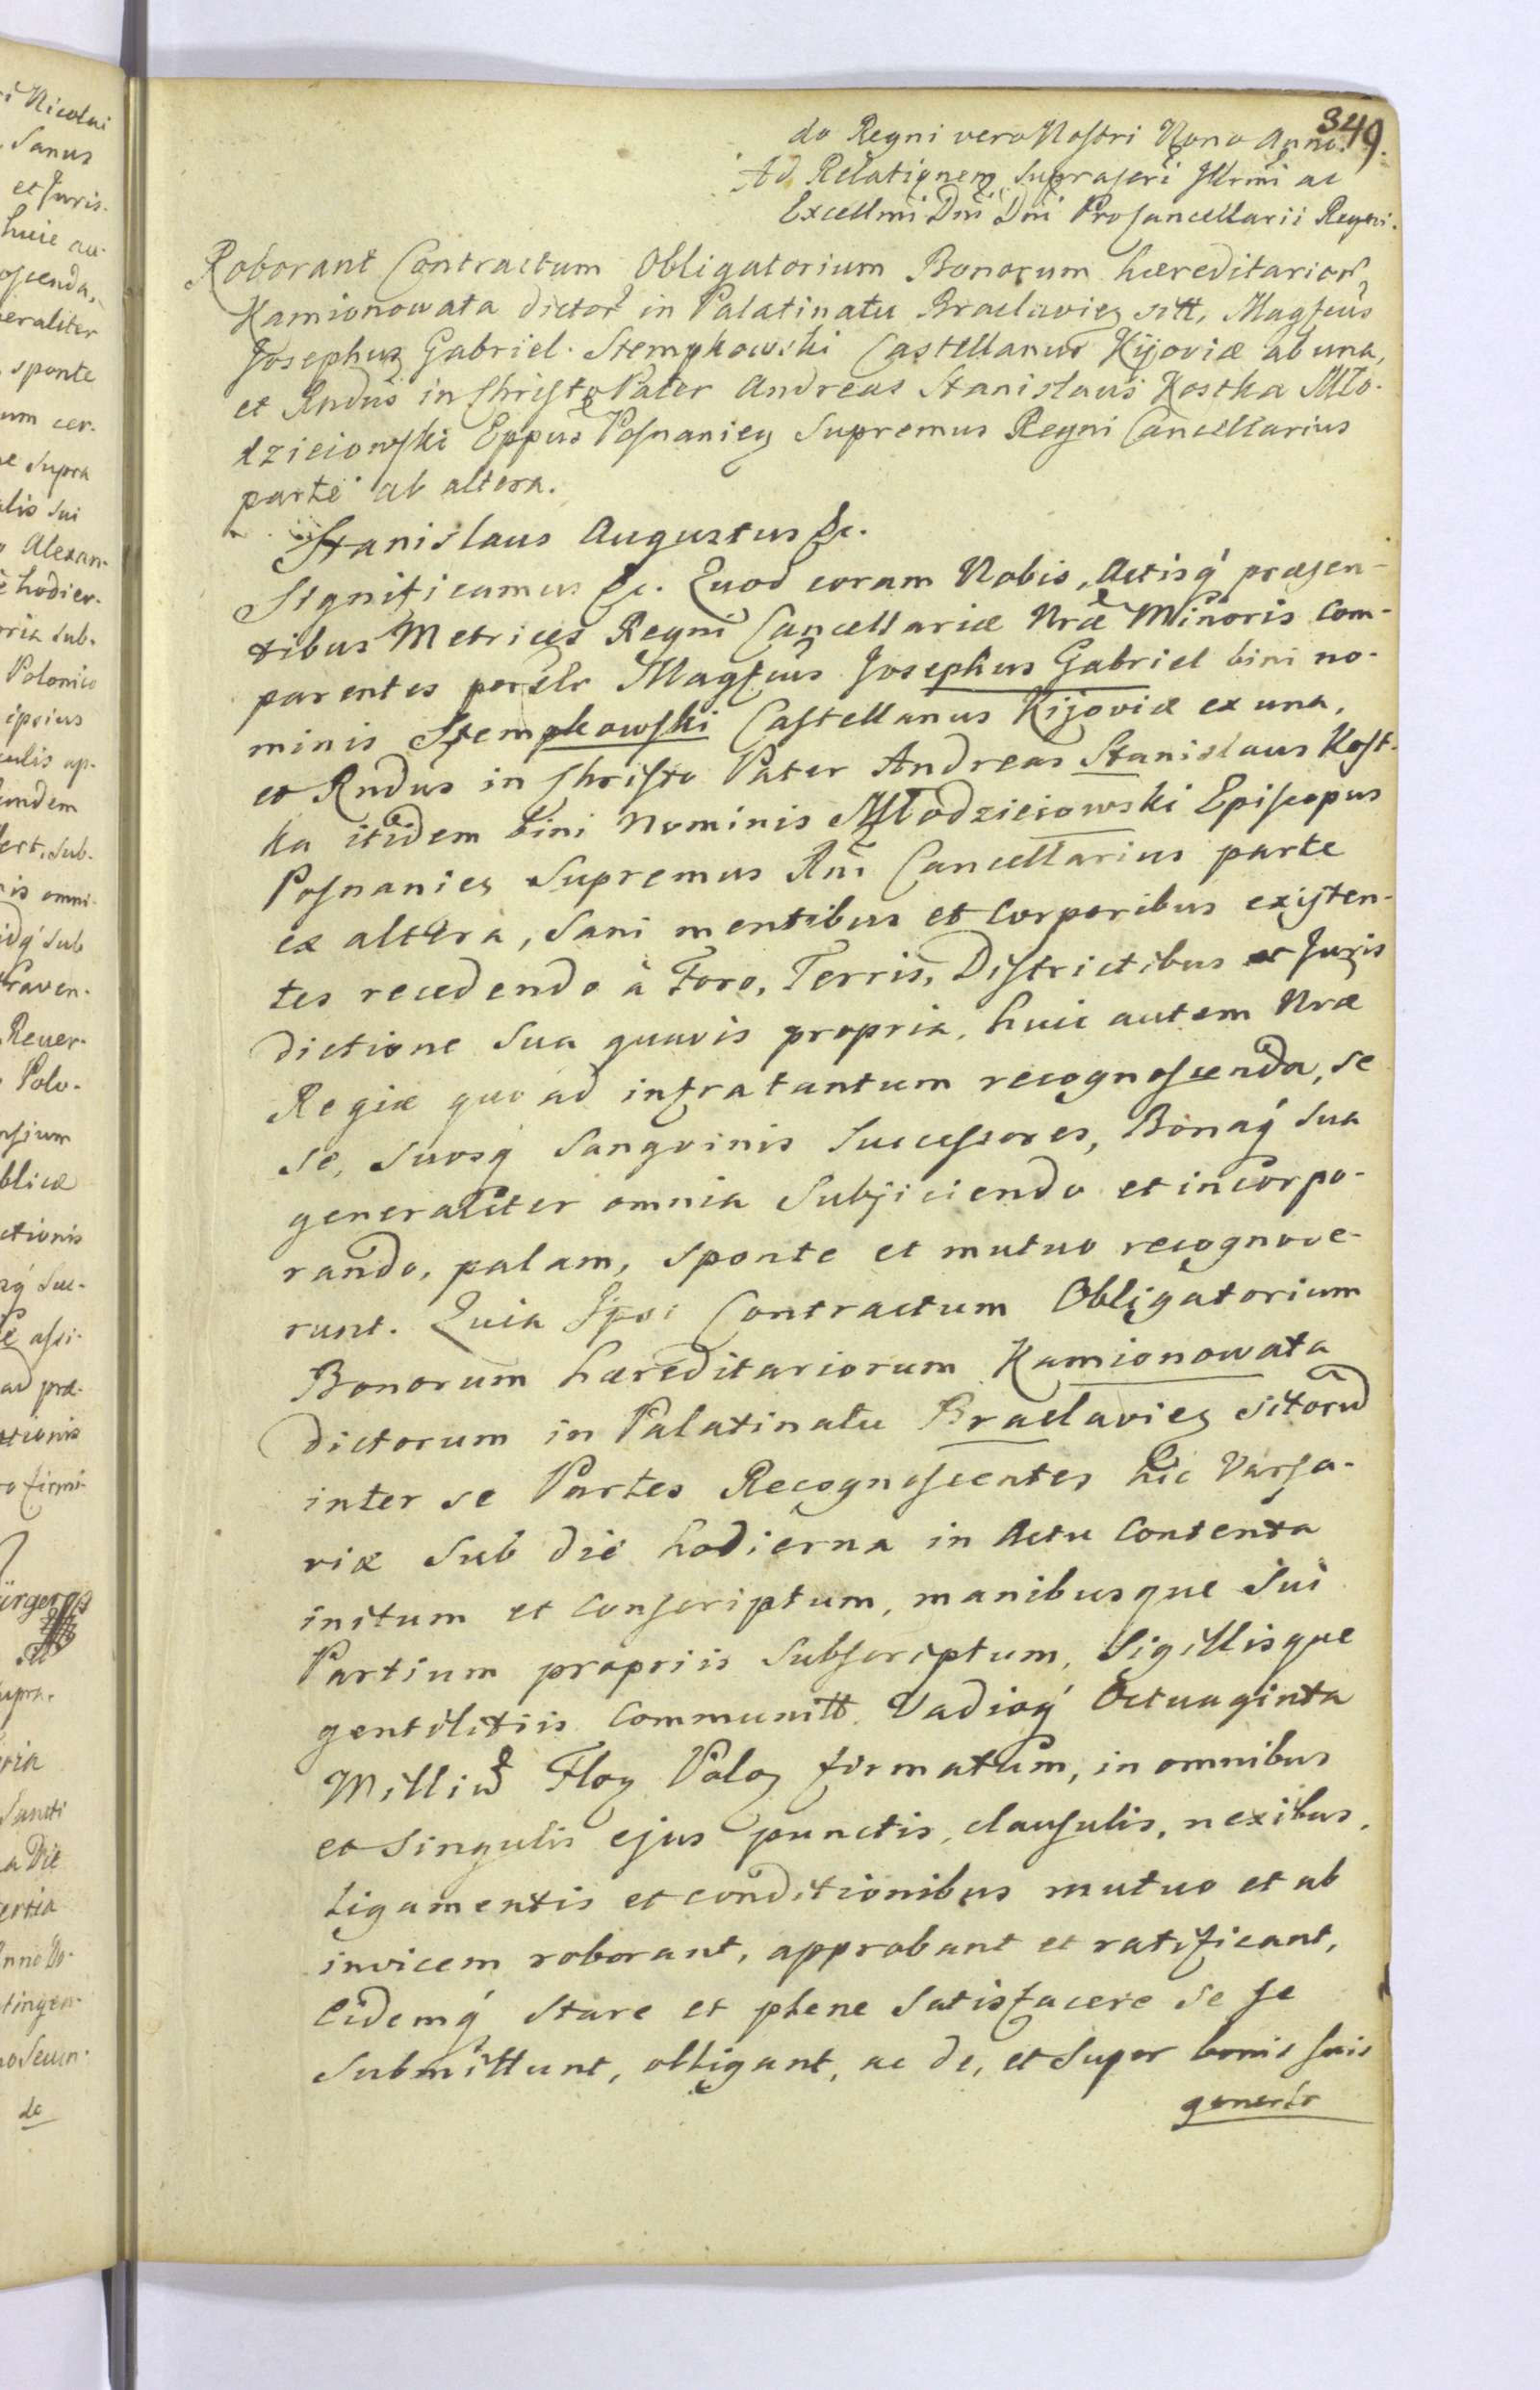 349.
do Regni vero Nostri Nono Anno.
Ad Relationem suprascri Illrmi ac
Excellmi Dni Dni Procancellarii Regni.
Roborant Contractum Obligatorium Bonorum hæreditarior
Kamionowata dictor in Palatinatu Braclavien sitt, Magfcus
Josephus Gabriel Stempkowski Castellanus Kijoviæ ab una,
et Rndus in Christo Pater Andreas Stanislaus Kostka Mło-
dzieiowski Eppus Posnanien Supremus Regni Cancellarius
parte ab altera.
Stanislaus Augustus &c.
Significamus &c. Quod coram Nobis, Actisq́ præsen-
tibus Metrices Regni Cancellariæ Nræ Minoris Com-
parentes persłr Magfcus Josephus Gabriel bini no-
minis Stempkowski Castellanus Kijoviæ ex una,
et Rndus in Christo Pater Andreas Stanislaus Kost-
ka itidem bini Nominis Młodzieiowski Episcopus
Posnanien Supremus Rni Cancellarius parte
ex altera, Sani mentibus et Corporibus existen-
tes recedendo à Foro, Terris, Districtibus et Juris
dictione Sua quavis propria, huic autem Nræ
Regiæ quo ad infra tantum recognoscenda, se
se, suosq́ Sangvinis Successores, Bonaq́ sua
generaliter omnia Subjiciendo et incorpo-
rando, palam, sponte et mutuo recognove-
runt. Quia Ipsi Contractum Obligatorium
Bonorum hæreditariorum Kamionowata
dictorum in Palatinatu Braclavien sitorū
inter se Partes Recognoscentes hic Varsa-
viæ Sub die hodierna in Actu Contenta
initum et Conscriptum, manibusque Sui
Partium propriis Subscriptum, Sigillisque
gentilitiis Communitt. Vadioq́ Octuaginta
Milliū Flon Polon firmatum, in omnibus
et Singulis ejus punctis, clausulis, nexibus,
ligamentis et conditionibus mutuo et ab
invicem roborant, approbant et ratificant,
Eidemq́ Stare et plene Satisfacere se se
Submittunt, obligant, ac de, et super bonis suis
generlr